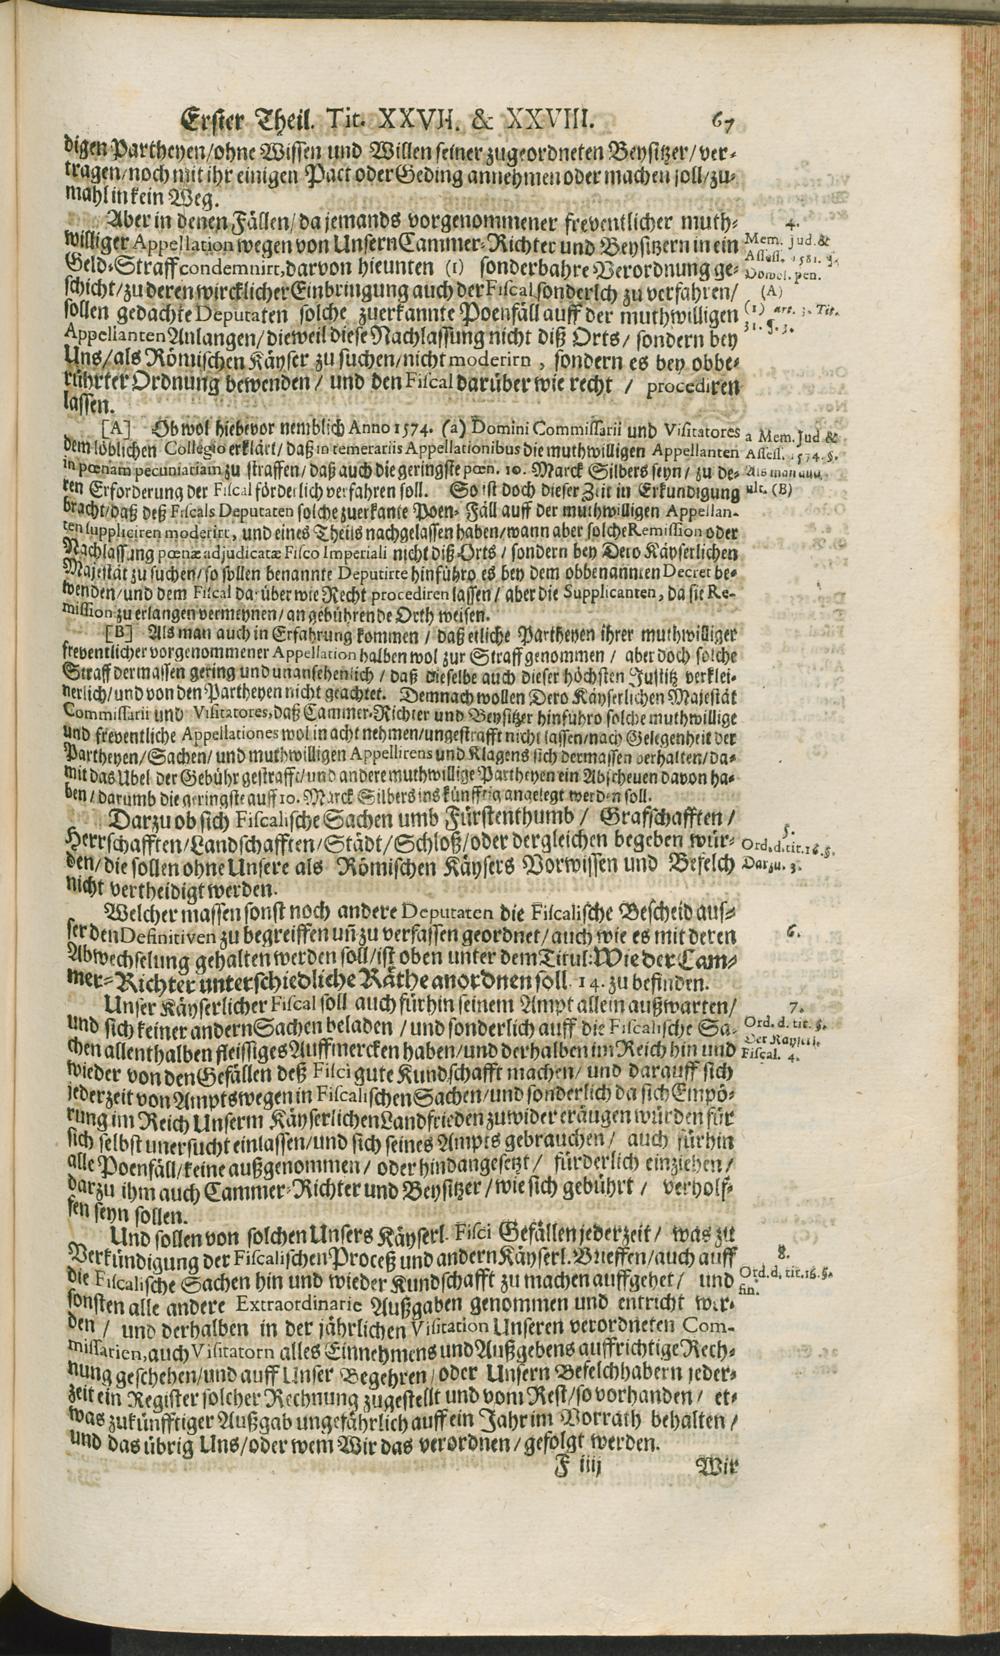 Erster Theil. Tit. XXVII. & XXVIII. 67
digen Partheyen/ohne Wissen und Willen seiner zugeordneten Beysitzer/ver-
tragen/noch mit ihr einigen Pact oder Geding annehmen oder machen soll/zu-
mahl in kein Weg.
Aber in denen Fällen/da jemands vorgenommener freventlicher muth-
williger Appellation wegen von Unsern Cammer-Richter und Beysitzern in ein
Geld-Straff condemnirt,darvon hieunten (1) sonderbahre Verordnung ge-
schicht/zu deren wircklicher Einbringung auch der Fiscal sonderlch zu verfahren/
sollen gedachte Deputaten solche zuerkannte Poenfäll auff der muthwilligen
Appellanten Anlangen/dieweil diese Nachlassung nicht diß Orts/sondern bey
Uns/als Römischen Käyser zu suchen/nicht moderirn, sondern es bey obbe-
rührter Ordnung bewenden/ und den Fiscal darüber wie recht/ procediren
lassen.
4.
Mem. jud. &
Assess. 1581. §.
Dowol. pen.
(A)
(1) art. 3. Tit.
31. §. 3.
[A] Ob wol hiebevor nemblich Anno 1574. (a) Domini Commissarii und Visitatores
dem löblichen Collegio erklärt/daß in temerariis Appellationibus die muthwilligen Appellanten
in pœnam pecuniariam zu straffen/daß auch die geringste pœn. 10. Marck Silbers seyn/zu de-
ren Erforderung der Fiscal förderlich verfahren soll. So ist doch dieser Zeit in Erkundigung
bracht/daß deß Fiscals Deputaten solche zuerkante Poen-Fäll auff der muthwilligen Appellan-
ten suppliciren moderirt, und eines Theils nachgelassen haben/wann aber solche Remission oder
Nachlassung pœnæ adjudicatæ Fisco Imperiali nicht diß Orts/sondern bey Dero Käyserlichen
Majestät zu suchen/so sollen benannte Deputirte hinführo es bey dem obbenannten Decret be-
wenden/und dem Fiscal darüber wie Recht procediren lassen/aber die Supplicanten, da sie Re-
mission zu erlangen vermeynen/an gebührende Orth weisen.
a Mem. Jud &
Assess. 1574. §.
Als man auch
ult. (B)
[B] Als man auch in Erfahrung kommen/daß etliche Partheyen ihrer muthwilliger
freventlicher vorgenommener Appellation halben wol zur Straff genommen/ aber doch solche
Straff dermassen gering und unansehenlich/daß dieselbe auch dieser höchsten Justitz verklei-
nerlich/und von den Partheyen nicht geachtet. Demnach wollen Dero Käyserlichen Majestät
Commissarii und Visitatores,daß Cammer-Richter und Beysitzer hinführo solche muthwillige
und freventliche Appellationes wol in acht nehmen/ungestrafft nicht lassen/nach Gelegenheit der
Partheyen/Sachen/und muthwilligen Appellirens und Klagens sich dermassen verhalten/da-
mit das Ubel der Gebühr gestrafft/und andere muthwillige Partheyen ein Abscheuen davon ha-
ben/darumb die geringste auff 10. Marck Silbers ins künfftig angelegt werden soll.
Darzu ob sich Fiscalische Sachen umb Fürstenthumb/ Grafschafften/
Herrschafften/Landschafften/Städt/Schloß/oder dergleichen begeben wür-
den/die sollen ohne Unsere als Römischen Käysers Vorwissen und Befelch
nicht vertheidigt werden.
5.
Ord.d.tit.16.§.
Darzu. 3.
Welcher massen sonst noch andere Deputaten die Fiscalische Bescheid aus-
ser den Definitiven zu begreiffen uñ zu verfassen geordnet/auch wie es mit deren
Abwechselung gehalten werden soll/ist oben unter dem Titul:Wie der Cam-
mer-Richter unterschiedliche Räthe anordnen soll. 14. zu befinden.
6.
Unser Käyserlicher Fiscal soll auch fürhin seinem Ampt allein außwarten/
und sich keiner andern Sachen beladen/und sonderlich auff die Fiscalische Sa-
chen allenthalben fleissiges Auffmercken haben/und derhalben im Reich hin und
wieder von den Gefällen deß Fisci gute Kundschafft machen/ und darauff sich
jederzeit von Amptswegen in Fiscalischen Sachen/und sonderlich da sich Empö-
rung im Reich Unserm Käyserlichen Landfrieden zuwider eräugen würden für
sich selbst unersucht einlassen/und sich seines Ampts gebrauchen/ auch fürhin
alle Poenfäll/keine außgenommen/ oder hindangesetzt/ fürderlich einziehen/
darzu ihm auch Cammer-Richter und Beysitzer/wie sich gebührt/ verholf-
fen seyn sollen.
7.
Ord. d. tit. §.
Der Kayserl.
Fiscal. 4.
Und sollen von solchen Unsers Käyserl. Fisci Gefällen jederzeit/ was zu
Verkündigung der Fiscalischen Proceß und andern Käyserl. Brieffen/auch auff
die Fiscalische Sachen hin und wieder Kundschafft zu machen auffgehet/ und
sonsten alle andere Extraordinarie Außgaben genommen und entricht wer-
den/ und derhalben in der jährlichen Visitation Unseren verordneten Com-
missarien,auch Visitatorn alles Einnehmens und Außgebens auffrichtige Rech-
nung geschehen/und auff Unser Begehren/oder Unsern Befelchhabern jeder-
zeit ein Register solcher Rechnung zugestellt und vom Rest/so vorhanden/ et-
was zukünfftiger Außgab ungefährlich auff ein Jahr im Vorrath behalten/
und das übrig Uns/oder wem Wir das verordnen/gefolgt werden.
8.
Ord.d.tit.16.§.
fin.
F iiij Wir